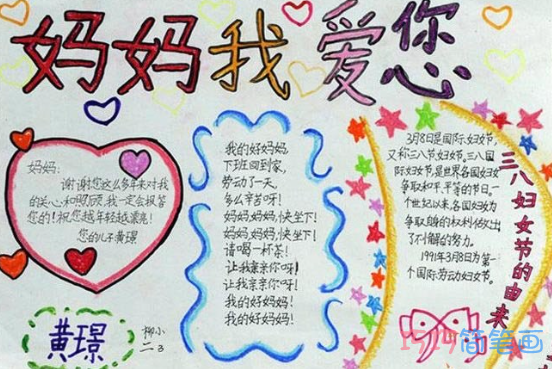 妈妈我爱您
妈妈:
谢谢您这么多年来对我
的关心和照顾,我一定会报答
您的!祝您越年轻越漂亮!
您的儿子黄璟
黄璟
柳小
二3
我的好妈妈
下班回到家,
劳动了一天,
多么辛苦呀!
妈妈,妈妈,快坐下!
妈妈,妈妈,快坐下!
请喝一杯茶!
让我亲亲你呀!
让我亲亲你呀!
我的好妈妈!
我的好妈妈!
3月8是国际妇女节,
又称三八节,妇女节,三八国
际妇女节,是世界各国妇女
争取和平,平等的节日,一
个世纪以来,各国妇女为
争取自身的权利,做出
了不懈的努力。
1991年3月8日为第一
个国际劳动妇女节。
三八妇女节的由来
1519简笔画